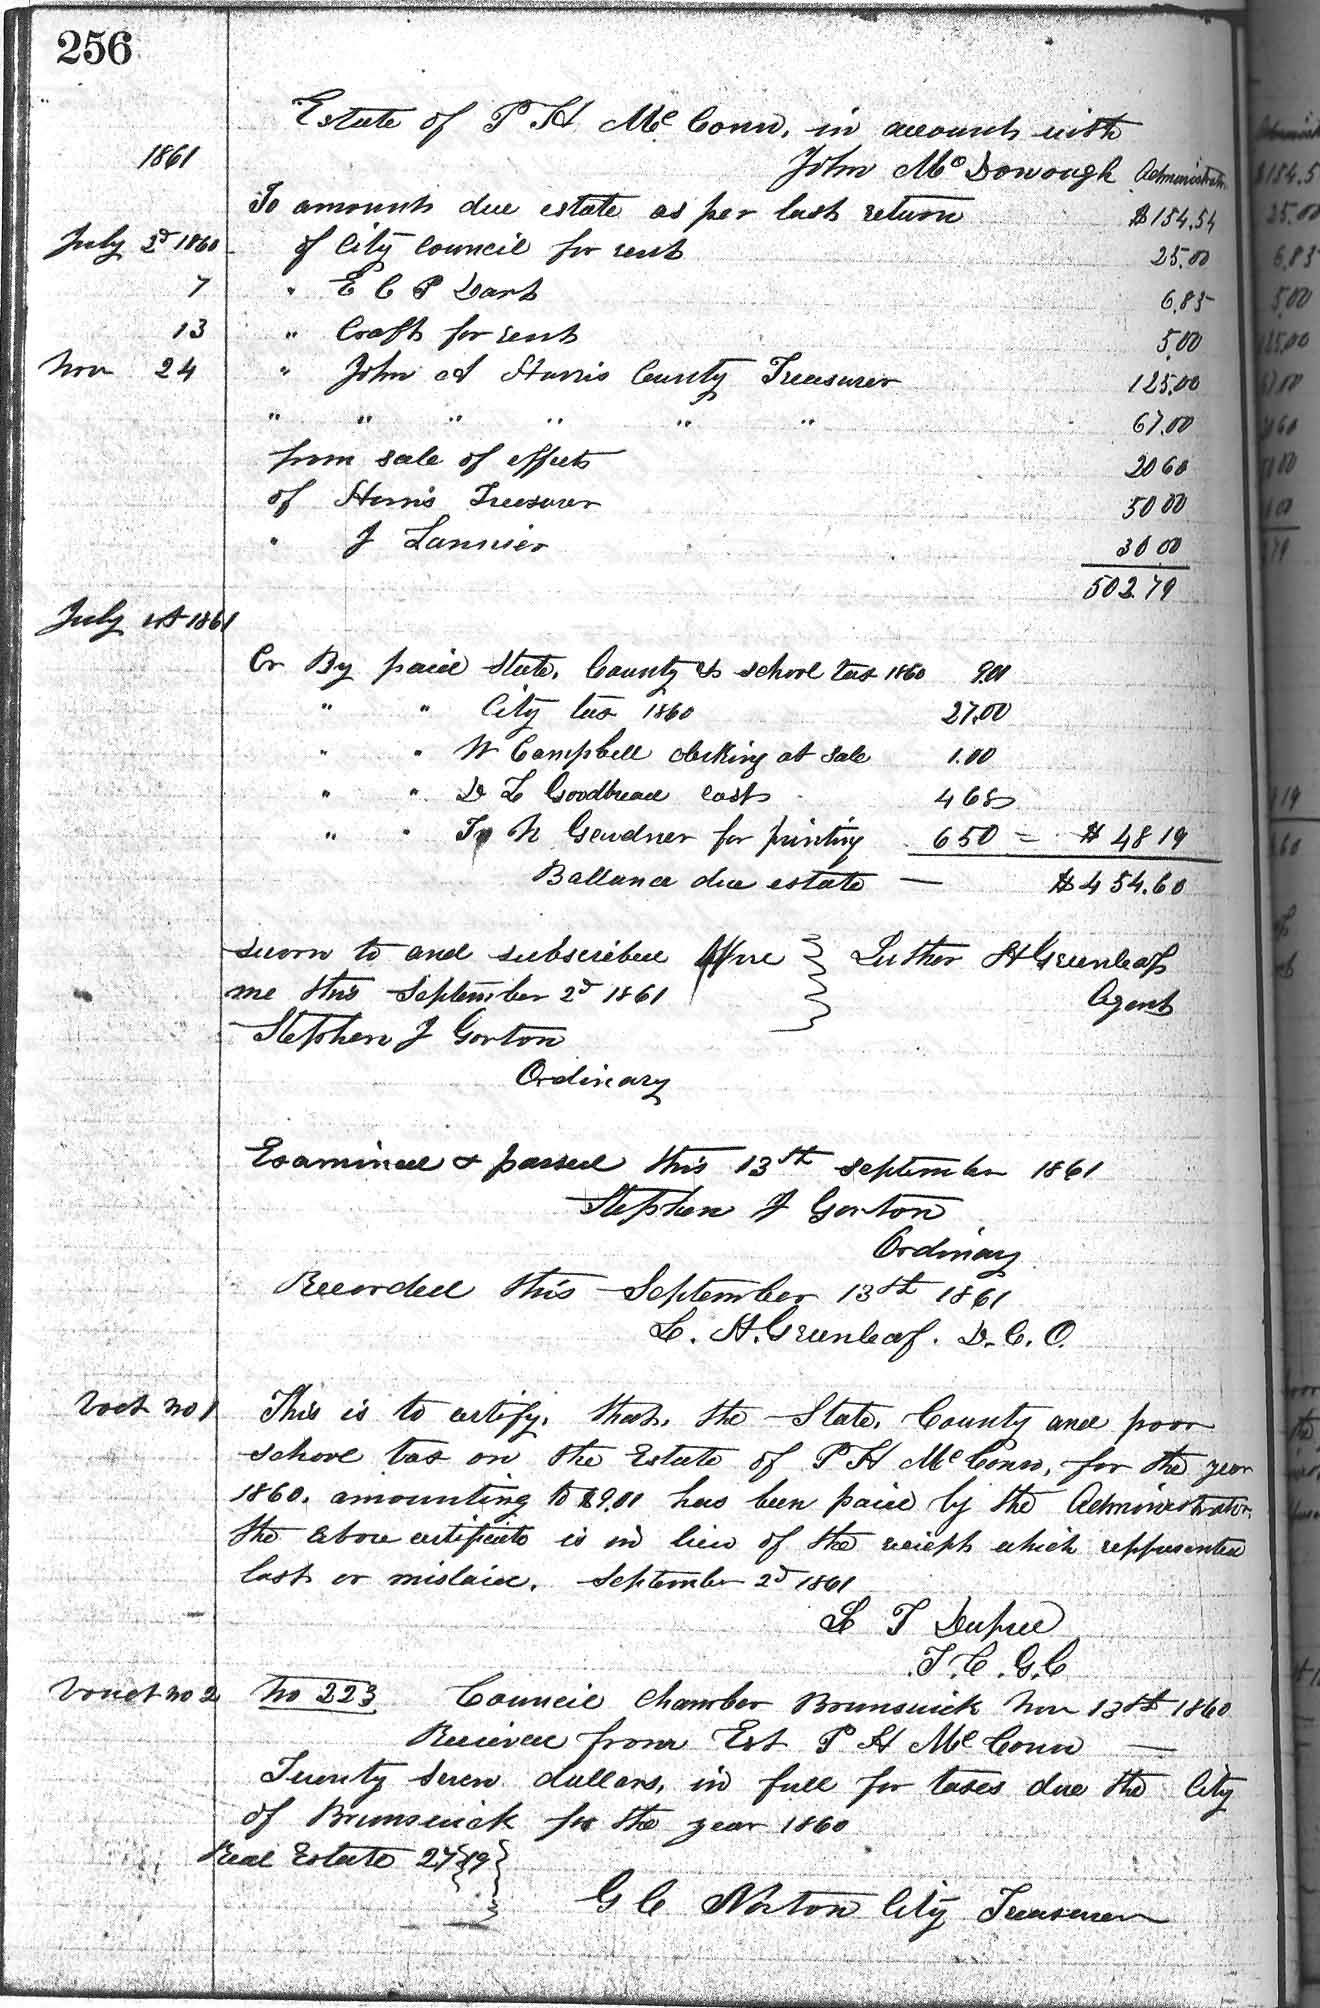 256
Estate of P H McConn, in accounts with
1861 John McDonough Administrator
To amounts due estate as per last return $154.54
July 2d 1860 of City Council for rent 25.00
7 " E C P Dart 6.85
13 " Craft for rent 5.00
Nov 24 " John A Harris County Treasurer 125.00
" " " " " " 67.00
from sale of effects 20 60
of Harris Treasurer 50 00
" J Lannier 30 00
502.79
July 1st 1861
Cr By paid State, County & school tax 1860 9.01
" " City tax 1860 27.00
" " W Campbell clerking at sale 1.00
" " D L Goodbread costs 4 68
" " T N Gardner for printing 6 50 = $48 19
Ballance due estate — $454.60
sworn to and subscribed before } Luther H Greenleaf
me this September 2d 1861 Agent
Stephen J Gorton
Ordinary
Examined & passed this 13th September 1861
Stephen J Gorton
Ordinary
Recorded this September 13th 1861
L. H. Greenleaf. D. C. O.
Voct no 1 This is to certify, that, the State, County and poor
school tax on the Estate of P H McConn, for the year
1860, amounting to $9.01 has been paid by the Administrator,
the above certificate is in lieu of the reciept which reppresented
lost or mislaid. September 2d 1861
L T Dupree
T. C. G. C
Vouct no 2 No 223 Council Chamber Brunswick Nov 13th 1860
Recieved from Est P H McConn —
Twenty seven dollars, in full for taxes due the City
of Brunswick for the year 1860
Real Estate 27 } 19 }
G C Norton City Treasurer